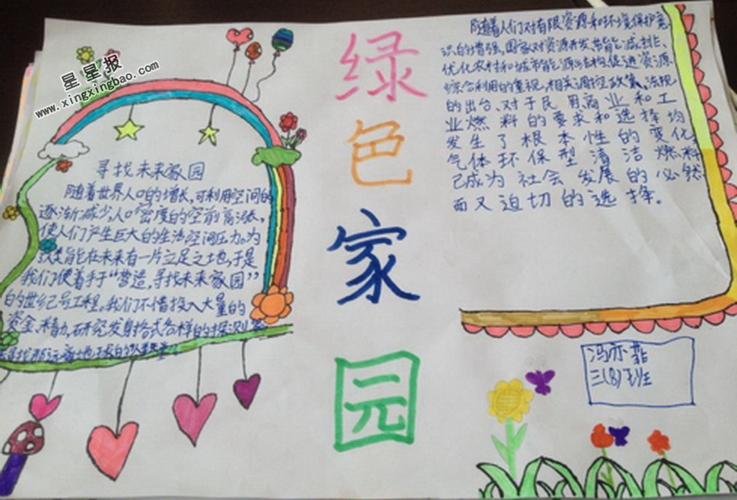 星星报
www.xingxingbao.com
绿
色
家
园
寻找未来家园
随着世界人口的增长,可利用空间的
逐渐减少人口密度的空前高涨,
使人们产生巨大的生活空间压力。为
人类能在未来有一片立足之地,于是
我们便着手于“营造,寻找未来家园”
的世纪号工程。我们不惜投入大量的
资金、精力、研究发身各式各样的探测
随着人们对有限资源和环境保护意
识的增强,国家对资源开发、节能减排、
优化农村和城市能源结构、促进资源
综合利用的重视,相关调控政策、法规
的出台、对于民用商业和工
业燃料的要求和选择均
发生了根本性的变化
气体环保型清洁燃料
已成为社会发展的必然
而又迫切的选择。
冯亦菲
三(8)班